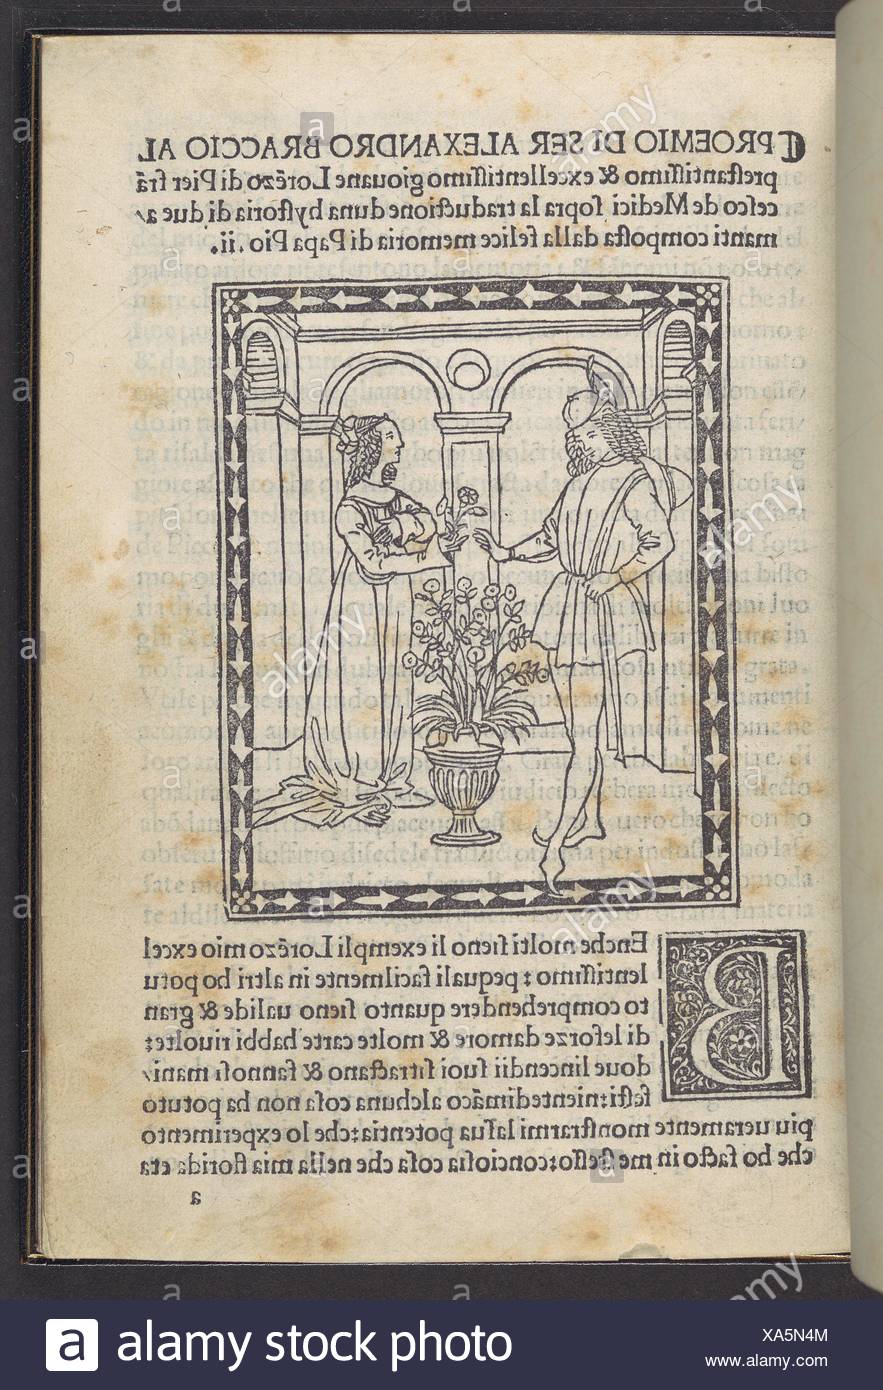 ¶ PROEMIO DI SER ALEXANDRO BRACCIO AL
preſtantiſſimo & excellentiſſimo giouane Lorẽzo di Pier frã
ceſco de Medici ſopra la traductione duna hyſtoria di due a/
manti compoſta dalla felice memoria di Papa Pio .ii.
BEnche molti ſieno li exempli Lorẽzo mio excel
lentiſſimo: pequali facilmente in altri ho potu
to comprehendere quanto ſieno ualide & gran
di leforze damore & molte carte habbi riuolte:
doue lincendii ſuoi ſitractano & fannoſi mani/
feſti: nientedimãco alchuna coſa non ha potuto
piu ueramente monſtrarmi laſua potentia: che lo experimento
che ho facto in me ſteſſo: concioſia coſa che nella mia florida eta
a
alamy stock photo
XA5N4M
www.alamy.com